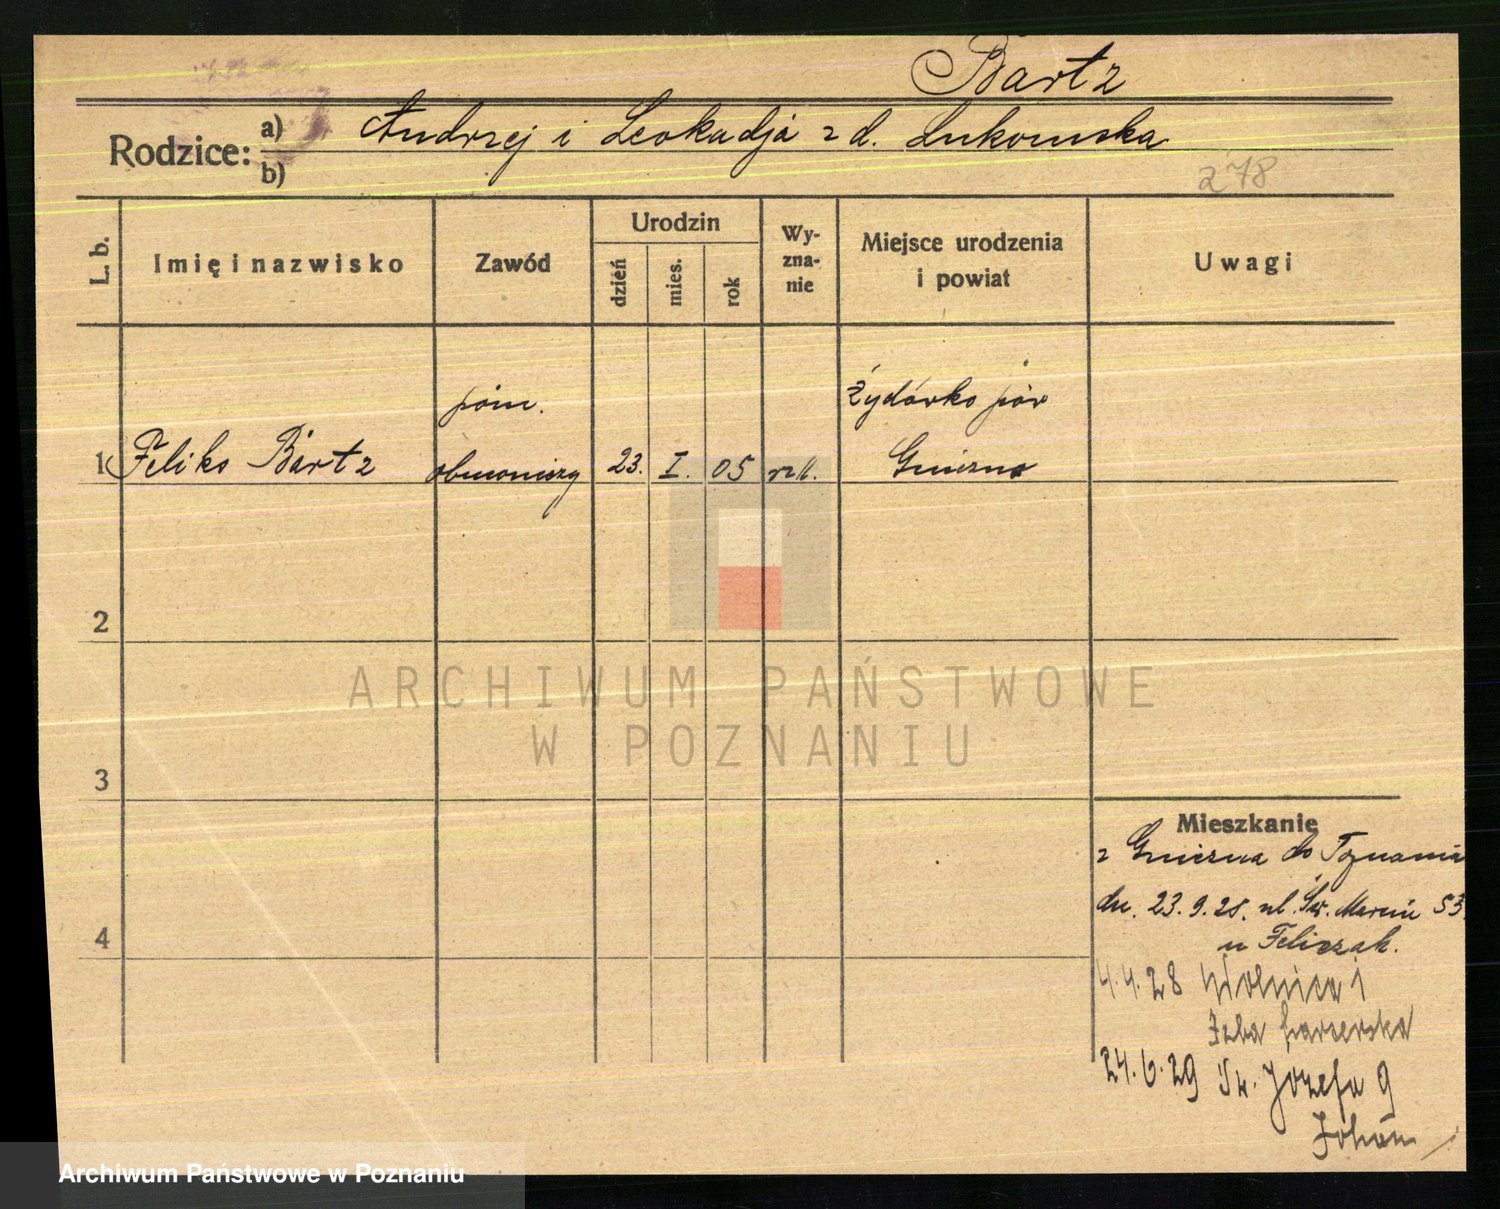 Bartz
Rodzice: a) Andrzej i Leokadja z d. Łukomska
b)
278
L. b. Imię i nazwisko Zawód Urodzin dzień mies. rok Wy-zna-nie Miejsce urodzenia i powiat Uwagi
pom. Żydówko pow
1 Feliks Bartz 23. I. 05 rz.k. Gniezno
2
ARCHIWUM PAŃSTWOWE
W POZNANIU
3
Mieszkanie
z Gniezna do Poznania
dn. 23.9.25. ul. Św. Marcin 53
4
u Feliczak.
4.4.28 Wolnica 1
Izba
24.6.29 Św. Józefa 9
Archiwum Państwowe w Poznaniu